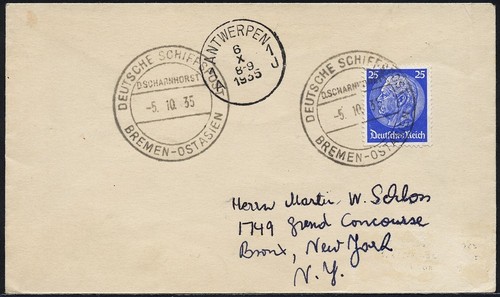 DEUTSCHE SCHIFFSPOST
D.SCHARNHORST
-5. 10. 35
BREMEN-OSTASIEN
ANTWERPEN 1
6
X
8-9
1935
DEUTSCHE SCHIFFSPOST
D.SCHARNHORST
-5. 10. 35
BREMEN-OSTASIEN
25 25
Deutsches Reich
Herrn Martin W. Schloss
1749 Grand Concourse
Bronx, New York
N.Y.